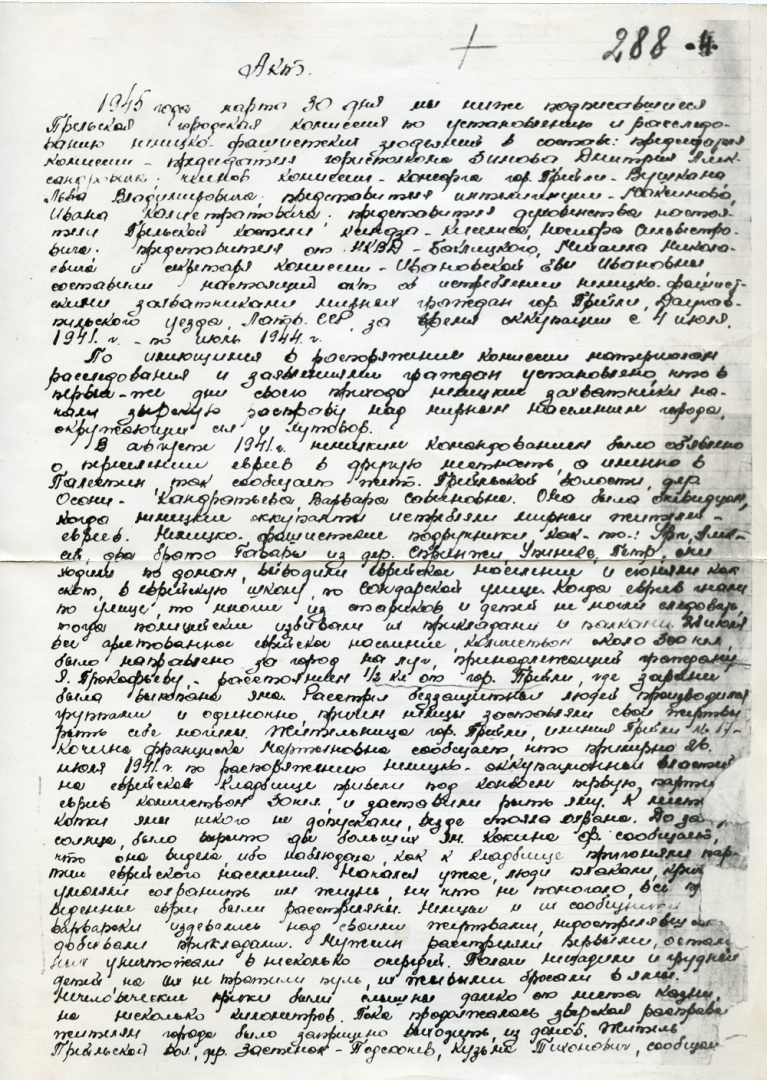 288
Акт.
1945 года марта 30 дня мы ниже подписавшиеся
Прельская городская комиссия по установлению и расследо-
ванию немецко-фашистских злодеяний в составе: председателя
комиссии - председателя горисполкома Зинова Дмитрия Алек-
сандровича: членов комиссии - ... гор. Прейли - Вушкана
Льва Владимировича, представителя интеллигенции - Максимова,
Ивана Калистратовича: представителя духовенства настоя-
теля Прельской костела ксендза - Киселиса, Иосифа Сильвестро-
вича: представителя от НКВД - Баклицкого, Михаила Никола-
евича и секретаря комиссии - Ивановской Евы Ивановны
составили настоящий акт об истреблении немецко-фашист-
скими захватчиками мирных граждан гор. Прейли, Даугав-
пильского уезда, Латв. ССР, за время оккупации с 4 июля
1941. г. - по июль 1944. г.
По имеющимся в распоряжении комиссии материалам
расследования и заявлениями граждан установлено, что в
первые-же дни своего прихода немецкие захватчики на-
чали зверскую расправу над мирным населением города,
окружающих сел и хуторов.
В августе 1941. г. немецким командованием было объявлено
о переселении евреев в другую местность, а именно в
Палестин, так сообщает жит. Прейльской волости, дер.
Осени - Кандратьева, Варвара Савиновна. Она была очевидцем,
когда немецкие оккупанты истребляли мирных жителей -
евреев. Немецко-фашистские подручники, как-то:
два брата Гавары из дер. Стринжи, Упеникс, Петр, они
ходили по домам, выводили еврейское население и сгоняли как
скот, в еврейскую школу, по Сондарской улице. Когда евреев гнали
по улице, то многие из стариков и детей не могли следовать,
тогда полицейские избивали их прикладами и палками. июля
все арестованное еврейское население, количеством около 300 чел.
было направлено за город на луг, принадлежащий гражданину
Я. Прокофьеву, - расстоянием 1/2 км от гор. Прейли, где заранее
была выкопана яма. Расстрел беззащитных людей производился
группами и одиночно, причем немцы заставляли свои жертвы
рыть себе могилы. Жительница гор. Прейли, имения Прейли № 17 -
Кокина Франциска Мартыновна сообщает, что примерно 26.
июля 1941. г. по распоряжению немецко-оккупационных властей
на еврейское кладбище привели под конвоем первую партию
евреев количеством 30 чел., и заставили рыть яму. К месту
копки ямы никого не допускали, везде стояла охрана. До за-
солнца, было вырыто две больших ям. Кокина Ф. сообщает,
что она видела, ибо наблюдала, как к кладбище пригоняли пар-
тии еврейского населения. Начался ужас, люди плакали,
умоляли сохранить им жизнь, ни что не помогало, все
веденные евреи были расстреляны. Немцы и их сообщники
варварски издевались над своими жертвами,
добивали прикладами. Мужчин расстреляли первыми, осталь-
ных уничтожали в несколько очередей. Палачи не щадили и грудных
детей на них не тратили пуль, их живыми бросали в ямы.
Нечеловеческие крики были слышны далеко от места казни,
на несколько километров. Пока продолжалась зверская расправа
жителям города было запрещено выходить из домов. Житель
Прейльской вол., др. Застенок - Подскочев, Кузьма Тихонович, сообщает